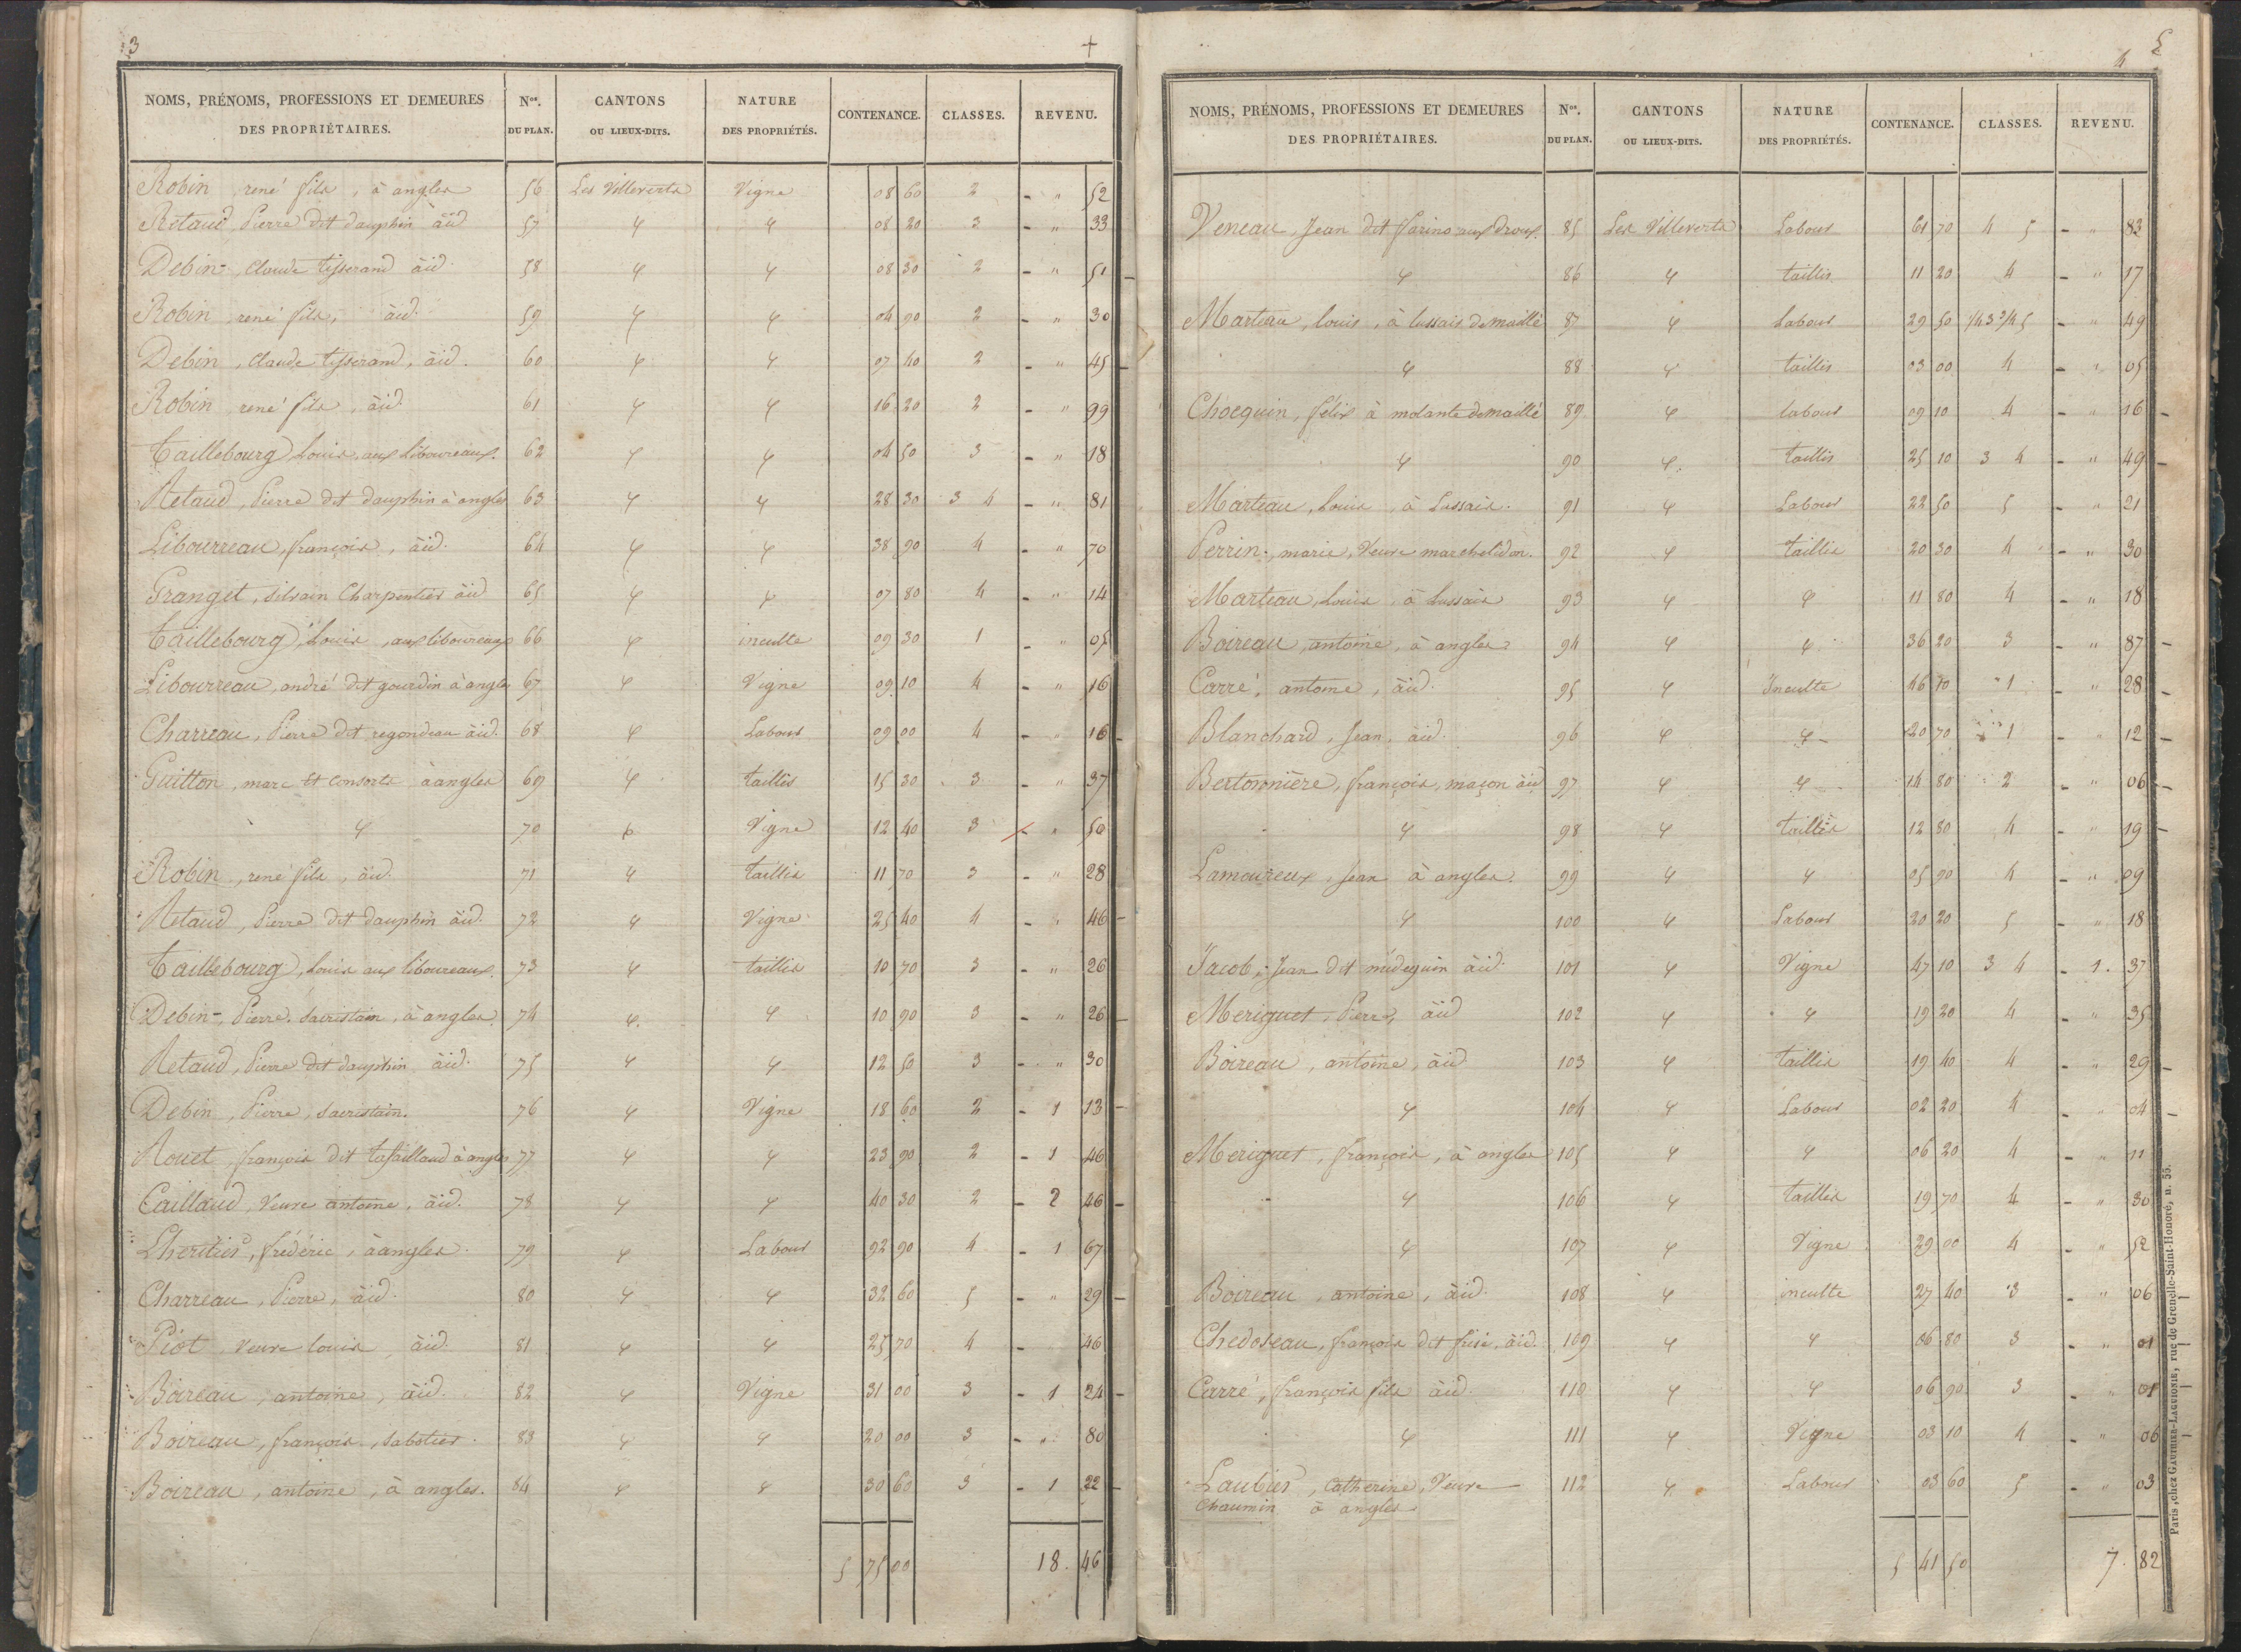 3
+
NOMS, PRÉNOMS, PROFESSIONS ET DEMEURES DES PROPRIÉTAIRES. Nos. DU PLAN. CANTONS OU LIEUX-DITS. NATURE DES PROPRIÉTÉS. CONTENANCE. CLASSES. REVENU.
Robin, rené fils, à angles 56 Les Villeverts Vigne 08 60 2 - " 52
Retaud, Pierre dit dauphin àid 57 " " 08 20 3 - " 33
Debin, Claude tisserand àid. 58 " " 08 30 2 - " 51
Robin, rené fils, àid. 59 " " 04 90 2 - " 30
Debin, Claude tisserand, àid. 60 " " 07 40 2 - " 45
Robin, rené fils, àid. 61 " " 16 20 2 - " 99
Taillebourg, Louis, aux liboureaux. 62 " " 04 50 3 - " 18
Retaud, Pierre dit dauphin à angles 63 " " 28 30 3 4 - " 81
Libourreau, françois, àid. 64 " " 38 90 4 - " 70
Granget, silvain Charpentier àid 65 " " 07 80 4 - " 14
Taillebourg, Louis, aux liboureaux 66 " inculte 09 30 1 - " 05
Libourreau, andré dit gourdin à angles 67 " Vigne 09 10 4 - " 16
Charreau, Pierre dit regondeau àid. 68 " Labour 09 00 4 - " 16
Guitton, marc et Consorts à angles 69 " taillis 15 30 3 - " 37
" 70 " Vigne 12 40 3 - " 50
Robin, rené fils, àid. 71 " taillis 11 70 3 - " 28
Retaud, Pierre dit dauphin àid. 72 " Vigne 25 40 4 - " 46
Taillebourg, Louis aux liboureaux. 73 " taillis 10 70 3 - " 26
Debin, Pierre. Sacristain, à angles 74 " " 10 90 3 - " 26
Retaud, Pierre dit dauphin àid. 75 " " 12 50 3 - " 30
Debin, Pierre, Sacristain. 76 " Vigne 18 60 2 - 1 13
Rouet, françois dit tafaillaud à angles 77 " " 23 90 2 - 1 46
Caillaud, Veuve antoine, àid. 78 " " 40 30 2 - 2 46
Lheritier, frédéric, à angles. 79 " Labour 92 90 4 - 1 67
Charreau, Pierre, àid. 80 " " 32 60 5 - " 29
Piot, Veuve louis àid. 81 " " 25 70 4 - 46
Boireau, antoine, àid. 82 " Vigne 31 00 3 - 1 24
Boireau, françois, Sabotier. 83 " " 20 00 3 - " 80
Boireau, antoine, à angles. 84 " " 30 60 3 - 1 22
5 75 00 18. 46
4
NOMS, PRÉNOMS, PROFESSIONS ET DEMEURES DES PROPRIÉTAIRES. Nos. DU PLAN. CANTONS OU LIEUX-DITS. NATURE DES PROPRIÉTÉS. CONTENANCE. CLASSES. REVENU.
Veneau, Jean dit farino aux droux. 85 Les Villeverts Labour 61 70 4 5 - " 83
" 86 " taillis 11 20 4 - " 17
Marteau, louis, à lussais de maillé 87 " Labour 29 50 1/4 3 3/4 5 - " 49
" 88 " taillis 03 00 4 - " 05
Chocquin, félix à molante de maillé 89 " labour 09 10 4 - " 16
" 90 " taillis 25 10 3 4 - " 49
Marteau, Louis, à Lussais. 91 " Labour 22 50 5 - " 21
Perrin, marie, Veuve marchelidon. 92 " taillis 20 30 4 - " 30
Marteau, Louis, à Lussais 93 " " 11 80 4 - " 18
Boireau, antoine, à angles. 94 " " 36 20 3 - " 87
Carré, antoine, àid. 95 " Inculte 46 70 1 - " 28
Blanchard, Jean, àid. 96 " " 20 70 1 - " 12
Bertonnière, françois, maçon àid 97 " " 14 80 2 - " 06
" 98 " taillis 12 80 4 - " 19
Lamoureux, Jean à angles. 99 " " 05 90 4 - " 09
" 100 " Labour 20 20 5 - " 18
Jacob, Jean dit médequin àid. 101 " Vigne 47 10 3 4 - 1. 37
Meriguet, Pierre, àid 102 " " 19 20 4 - " 35
Boireau, antoine, àid 103 " taillis 19 40 4 - " 29
" 104 " Labour 02 20 4 - " 04
Meriguet, françois, à angles 105 " " 06 20 4 - " 11
" 106 " taillis 19 70 4 - " 30
" 107 " Vigne 29 00 4 - " 52
Boireau, antoine, àid. 108 " inculte 27 40 3 - " 06
Chedoseau, françois dit frisé, àid. 109 " " 06 80 3 - " 01
Carré, françois fils àid 110 " " 06 90 3 - " 01
" 111 " Vigne 03 10 4 - " 06
Laubier, Catherine, Veuve 112 " Labour 03 60 5 - " 03
Chaumin à angles
5 41 50 7. 82
Paris, chez GAUTHIER-LAGUIONIE, rue de Grenelle-Saint-Honoré, n. 55.